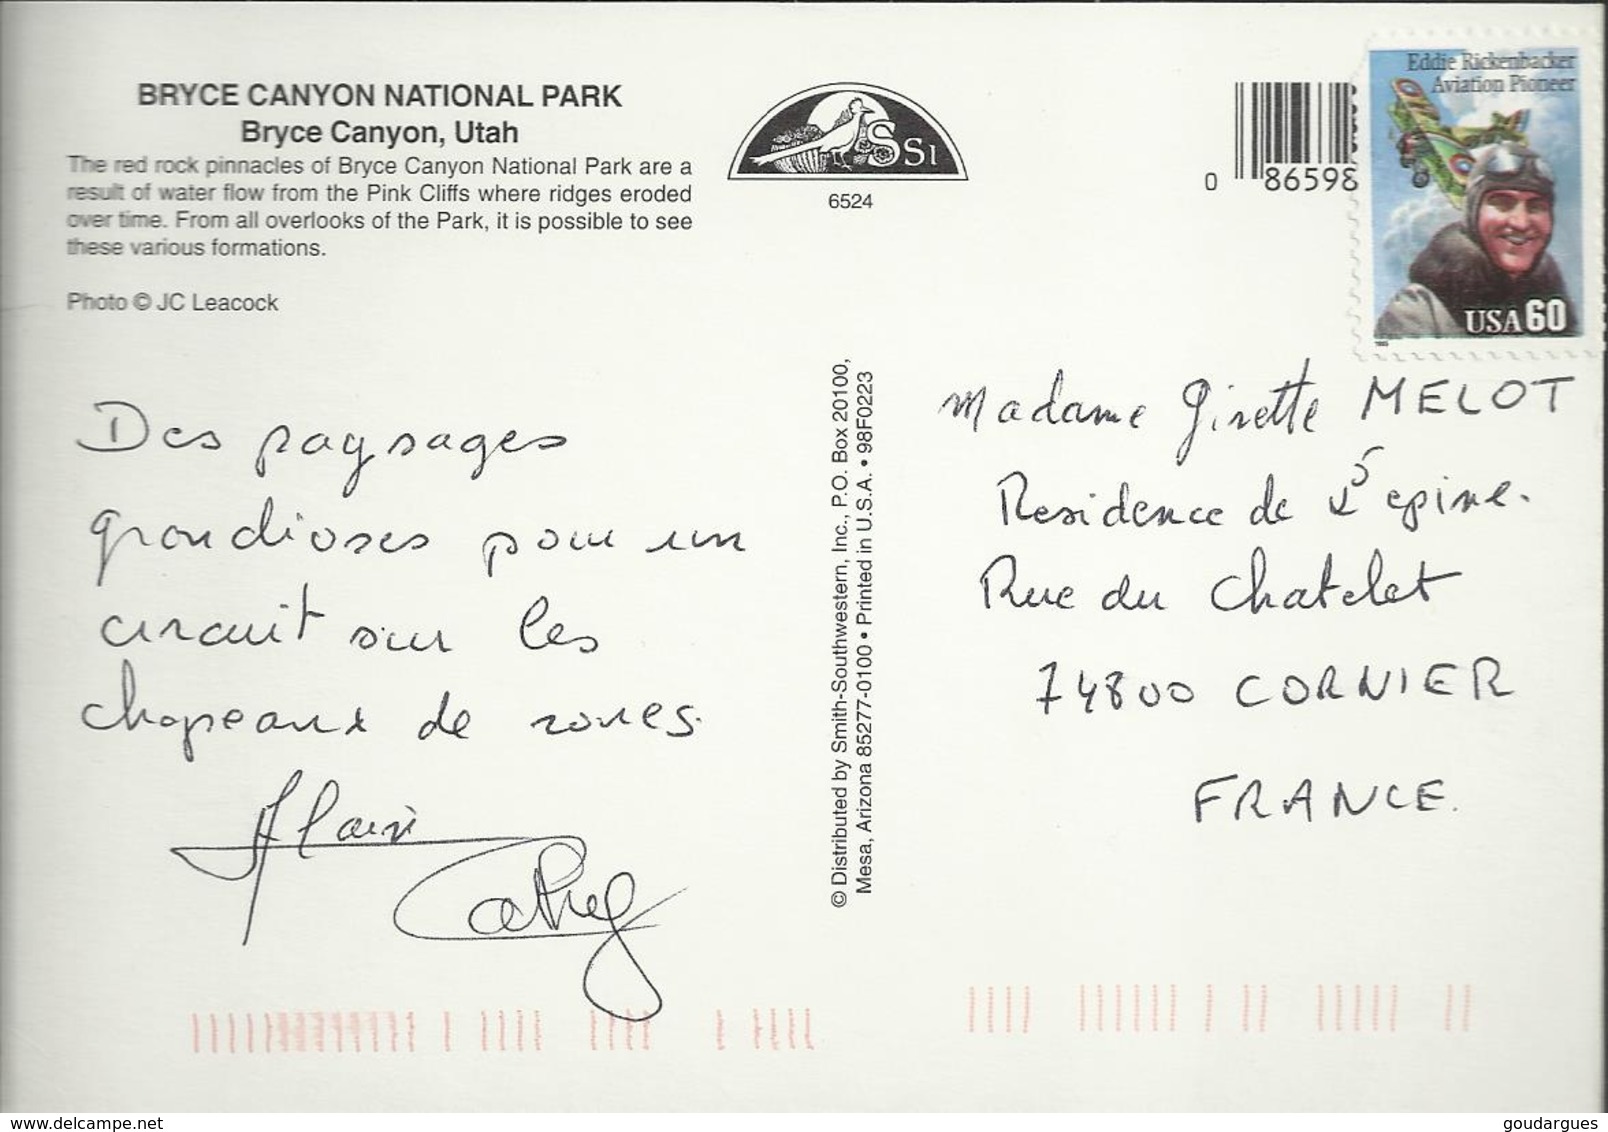 BRYCE CANYON NATIONAL PARK
Bryce Canyon, Utah
The red rock pinnacles of Bryce Canyon National Park are a
result of water flow from the Pink Cliffs where ridges eroded
over time. From all overlooks of the Park, it is possible to see
these various formations.
Photo © JC Leacock
SSI
6524
0 86598
Eddie Rickenbacker
Aviation Pioneer
USA 60
1995
Des paysages
grandioses pour un
circuit sur les
chapeaux de roues.
Alain
Cathy
© Distributed by Smith-Southwestern, Inc., P.O. Box 20100,
Mesa, Arizona 85277-0100 • Printed in U.S.A. • 98F0223
Madame Gisette MELOT
Residence de epine.
Rue du Chatelet
74800 CORNIER
FRANCE.
goudargues